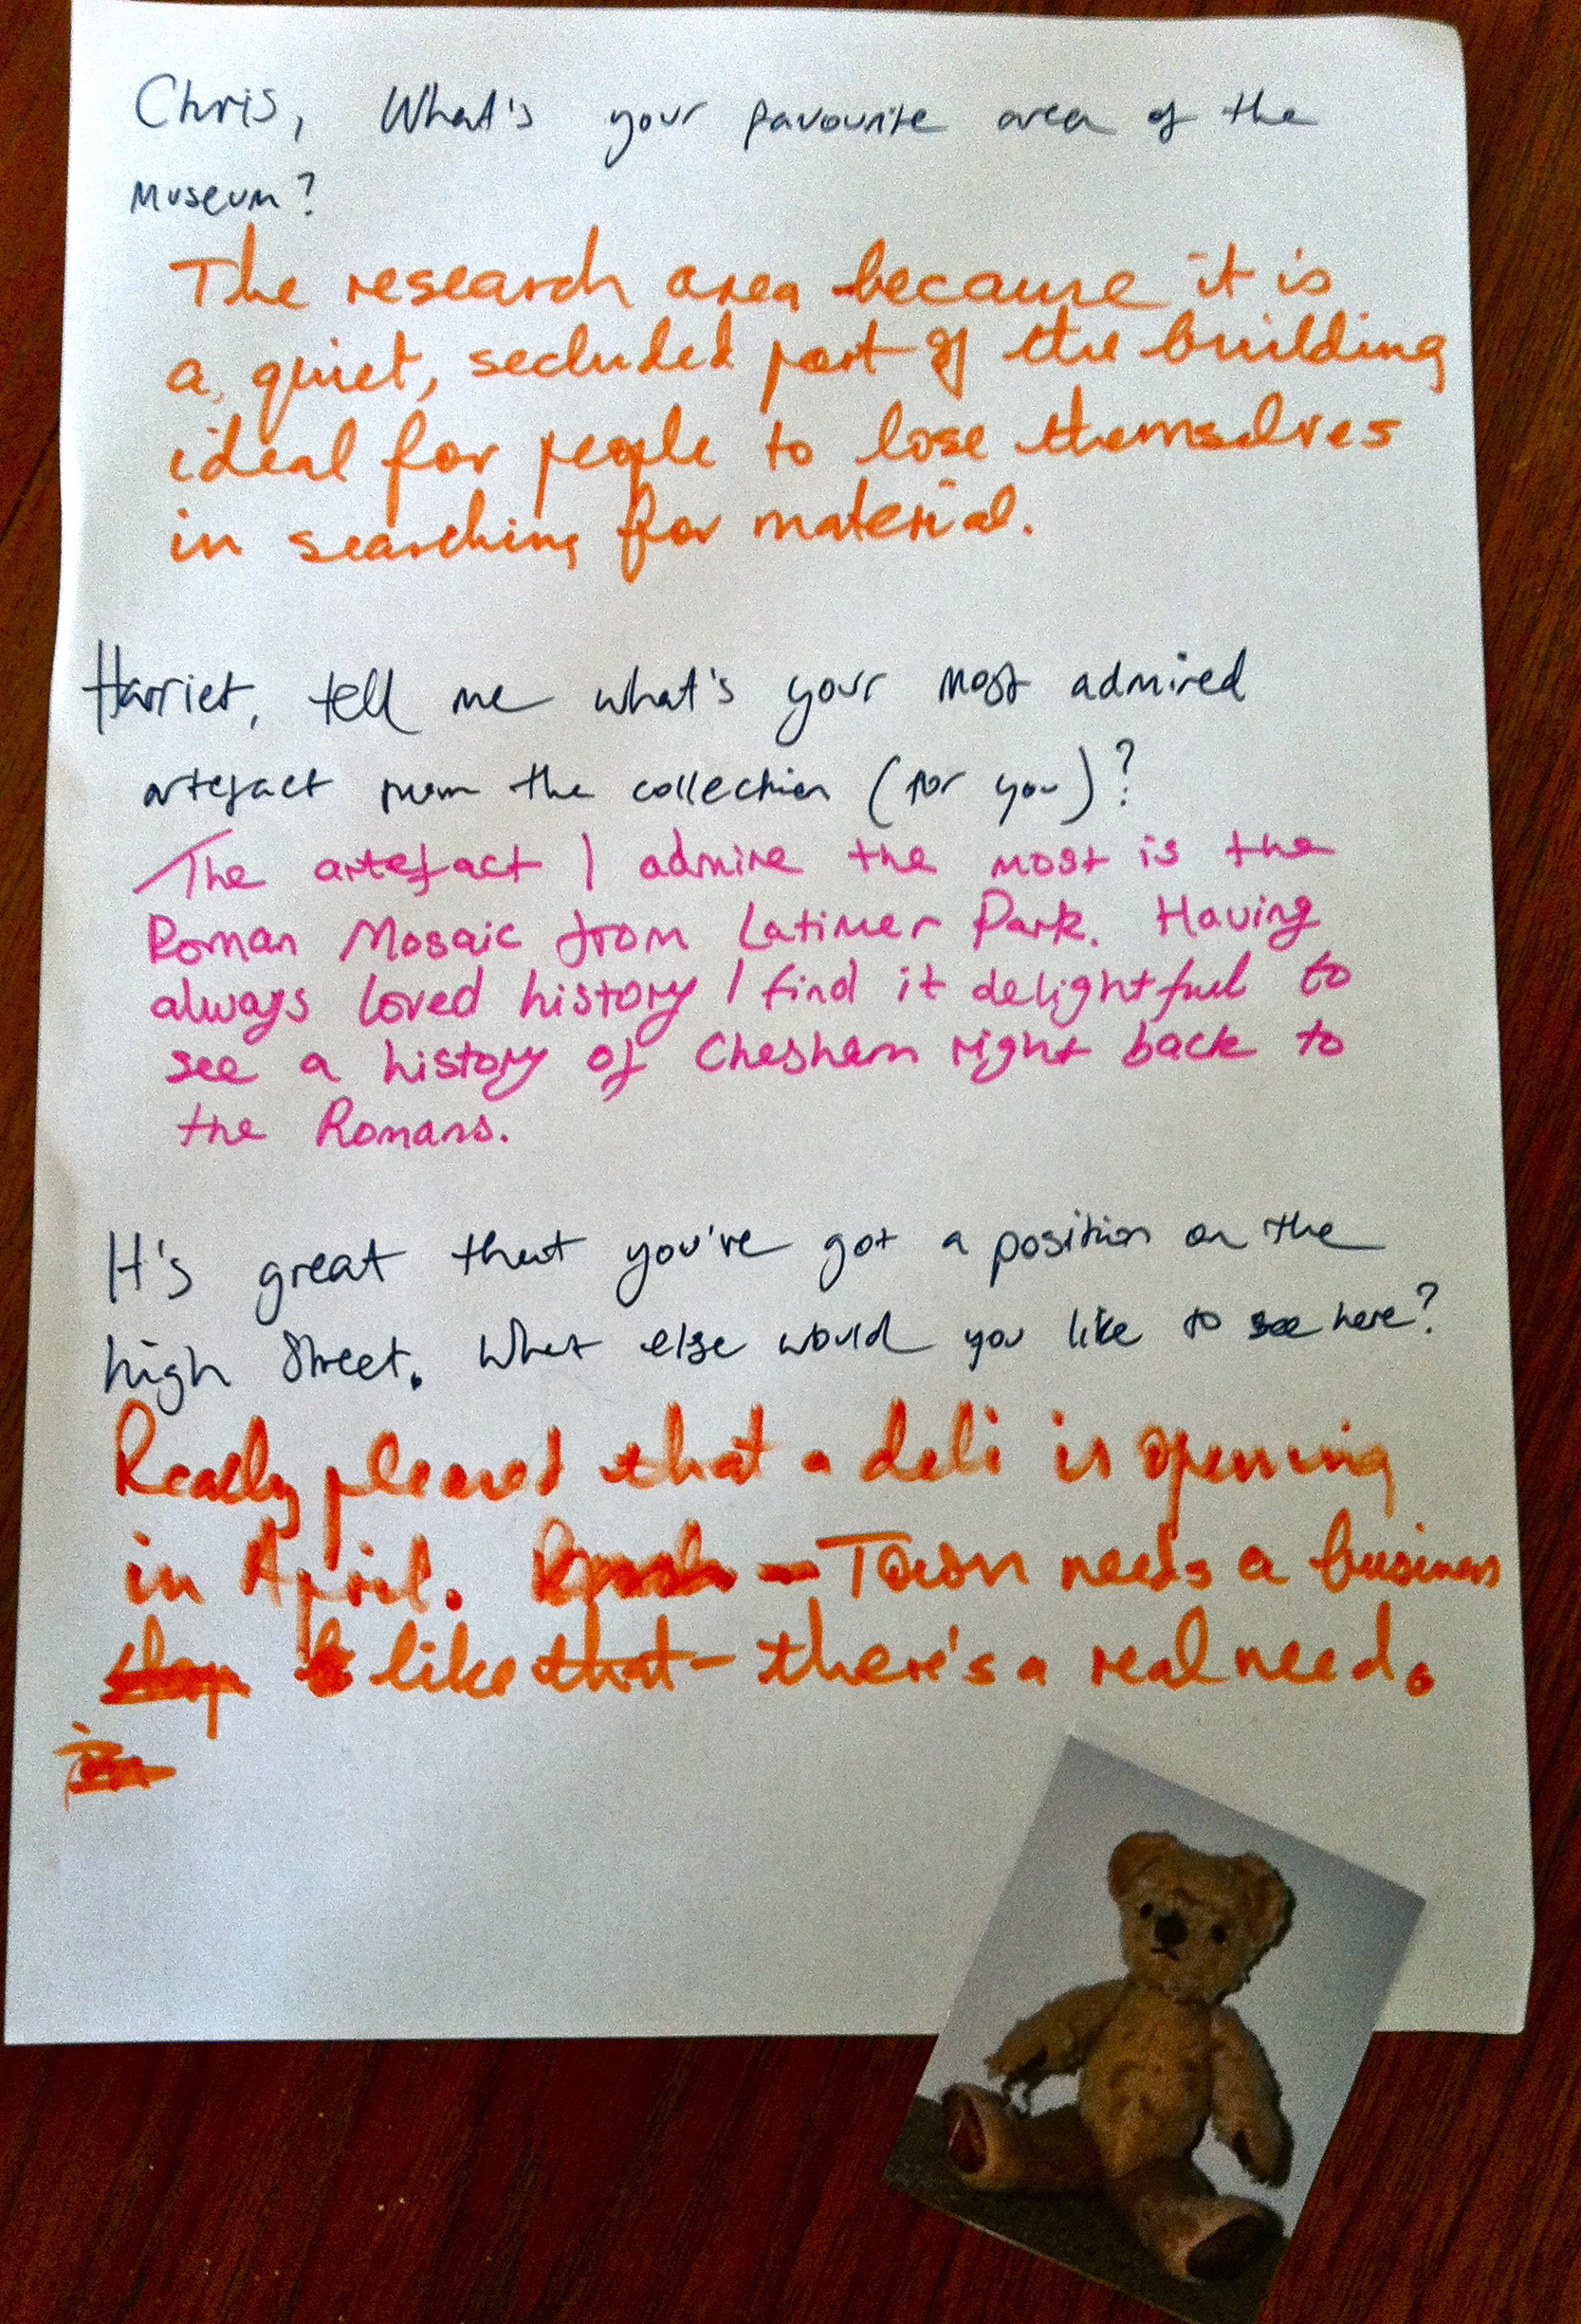 Chris, What's your favourite area of the
Museum?
The research area because it is
a quiet, secluded part of the building
ideal for people to lose themselves
in searching for material.
Harriet, tell me what's your most admired
artefact from the collection (for you)?
The artefact I admire the most is the
Roman Mosaic from Latimer Park. Having
always loved history I find it delightful to
see a history of Chesham right back to
the Romans.
It's great that you've got a position on the
high street. What else would you like to see here?
Really pleased that a deli is opening
in April. – Town needs a business
shop like that – there's a real need.